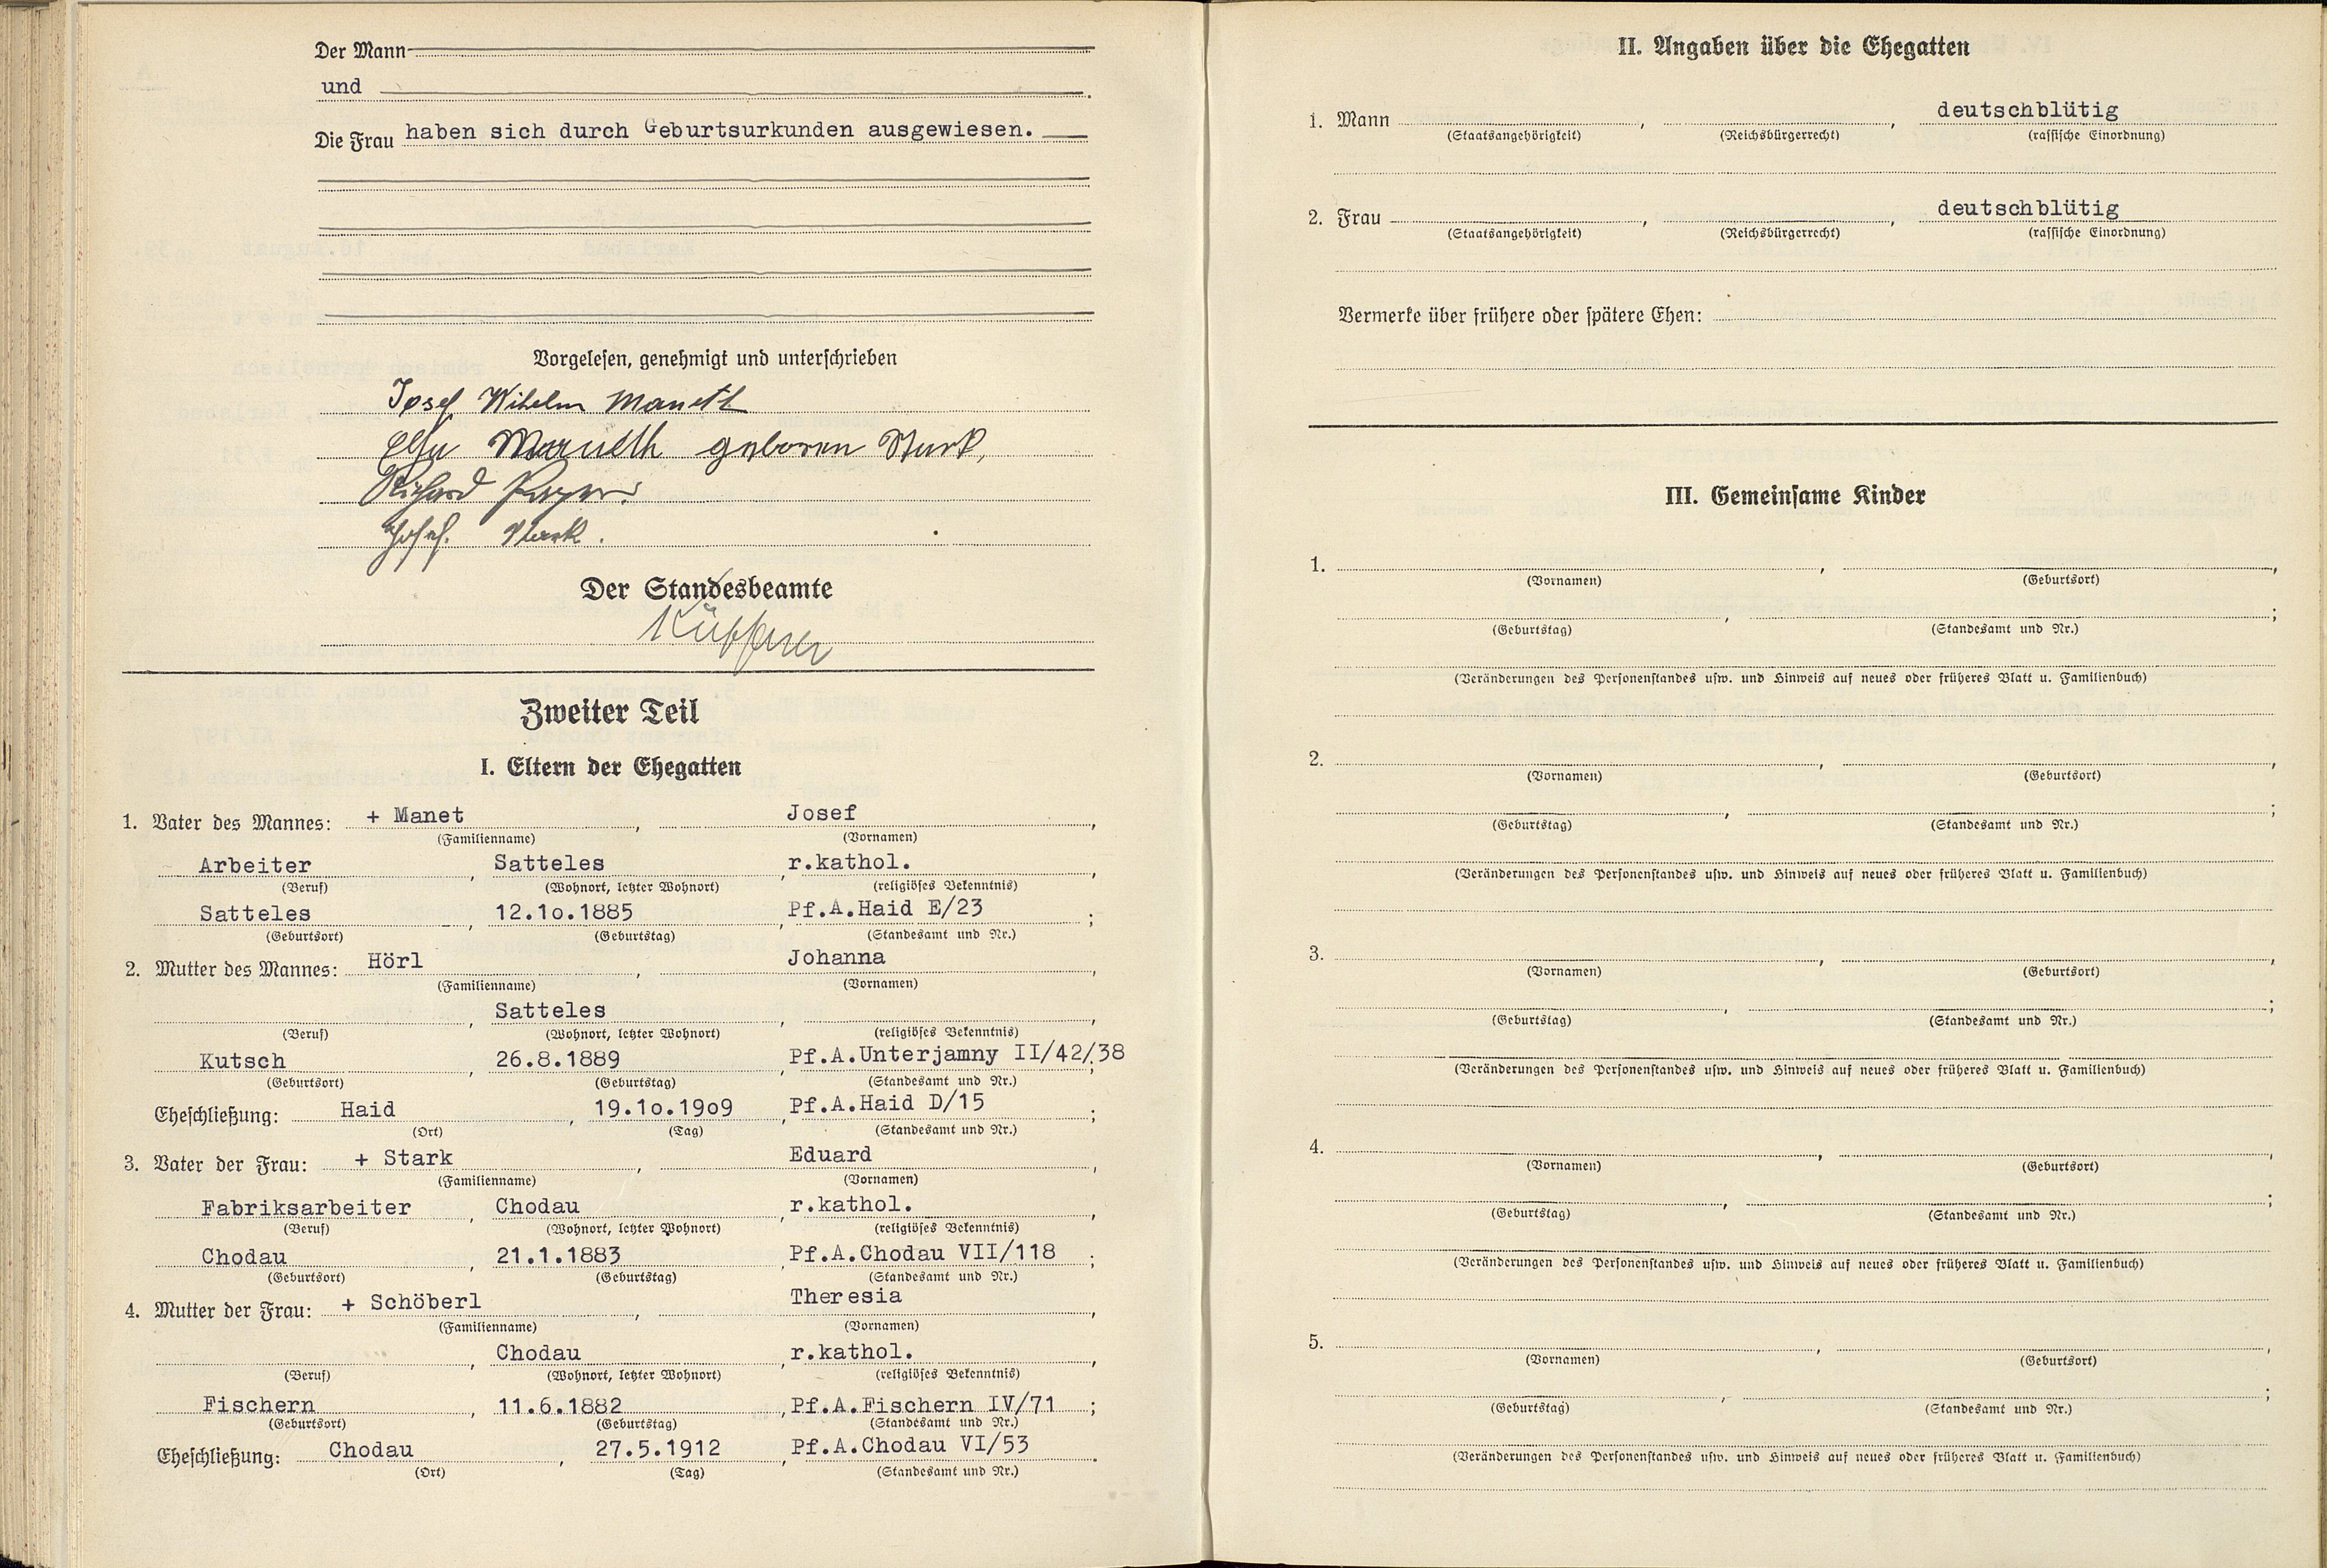 Der Mann
und
Die Frau haben sich durch Geburtsurkunden ausgewiesen.
Vorgelesen, genehmigt und unterschrieben
Josef Wilhelm Maneth
Elsa Maneth geboren Stark,
Richard
Josef Stark.
Der Standesbeamte
Zweiter Teil
I. Eltern der Ehegatten
1. Vater des Mannes: + Manet, Josef,
(Familienname) (Vornamen)
Arbeiter, Satteles, r.kathol.,
(Beruf) (Wohnort, letzter Wohnort) (religiöses Bekenntnis)
Satteles, 12.10.1885, Pf.A.Haid E/23;
(Geburtsort) (Geburtstag) (Standesamt und Nr.)
2. Mutter des Mannes: Hörl, Johanna,
(Familienname) (Vornamen)
, Satteles, ,
(Beruf) (Wohnort, letzter Wohnort) (religiöses Bekenntnis)
Kutsch, 26.8.1889, Pf.A.Unterjamny II/42/38;
(Geburtsort) (Geburtstag) (Standesamt und Nr.)
Eheschließung: Haid, 19.10.1909, Pf.A.Haid D/15;
(Ort) (Tag) (Standesamt und Nr.)
3. Vater der Frau: + Stark, Eduard,
(Familienname) (Vornamen)
Fabriksarbeiter, Chodau, r.kathol.,
(Beruf) (Wohnort, letzter Wohnort) (religiöses Bekenntnis)
Chodau, 21.1.1883, Pf.A.Chodau VII/118;
(Geburtsort) (Geburtstag) (Standesamt und Nr.)
4. Mutter der Frau: + Schöberl, Theresia,
(Familienname) (Vornamen)
, Chodau, r.kathol.,
(Beruf) (Wohnort, letzter Wohnort) (religiöses Bekenntnis)
Fischern, 11.6.1882, Pf.A.Fischern IV/71;
(Geburtsort) (Geburtstag) (Standesamt und Nr.)
Eheschließung: Chodau, 27.5.1912, Pf.A.Chodau VI/53.
(Ort) (Tag) (Standesamt und Nr.)
II. Angaben über die Ehegatten
1. Mann , , deutschblütig
(Staatsangehörigkeit) (Reichsbürgerrecht) (rassische Einordnung)
2. Frau , , deutschblütig
(Staatsangehörigkeit) (Reichsbürgerrecht) (rassische Einordnung)
Vermerke über frühere oder spätere Ehen:
III. Gemeinsame Kinder
1. , ,
(Vornamen) (Geburtsort)
, ;
(Geburtstag) (Standesamt und Nr.)
(Veränderungen des Personenstandes usw. und Hinweis auf neues oder früheres Blatt u. Familienbuch)
2. , ,
(Vornamen) (Geburtsort)
, ;
(Geburtstag) (Standesamt und Nr.)
(Veränderungen des Personenstandes usw. und Hinweis auf neues oder früheres Blatt u. Familienbuch)
3. , ,
(Vornamen) (Geburtsort)
, ;
(Geburtstag) (Standesamt und Nr.)
(Veränderungen des Personenstandes usw. und Hinweis auf neues oder früheres Blatt u. Familienbuch)
4. , ,
(Vornamen) (Geburtsort)
, ;
(Geburtstag) (Standesamt und Nr.)
(Veränderungen des Personenstandes usw. und Hinweis auf neues oder früheres Blatt u. Familienbuch)
5. , ,
(Vornamen) (Geburtsort)
, ;
(Geburtstag) (Standesamt und Nr.)
(Veränderungen des Personenstandes usw. und Hinweis auf neues oder früheres Blatt u. Familienbuch)